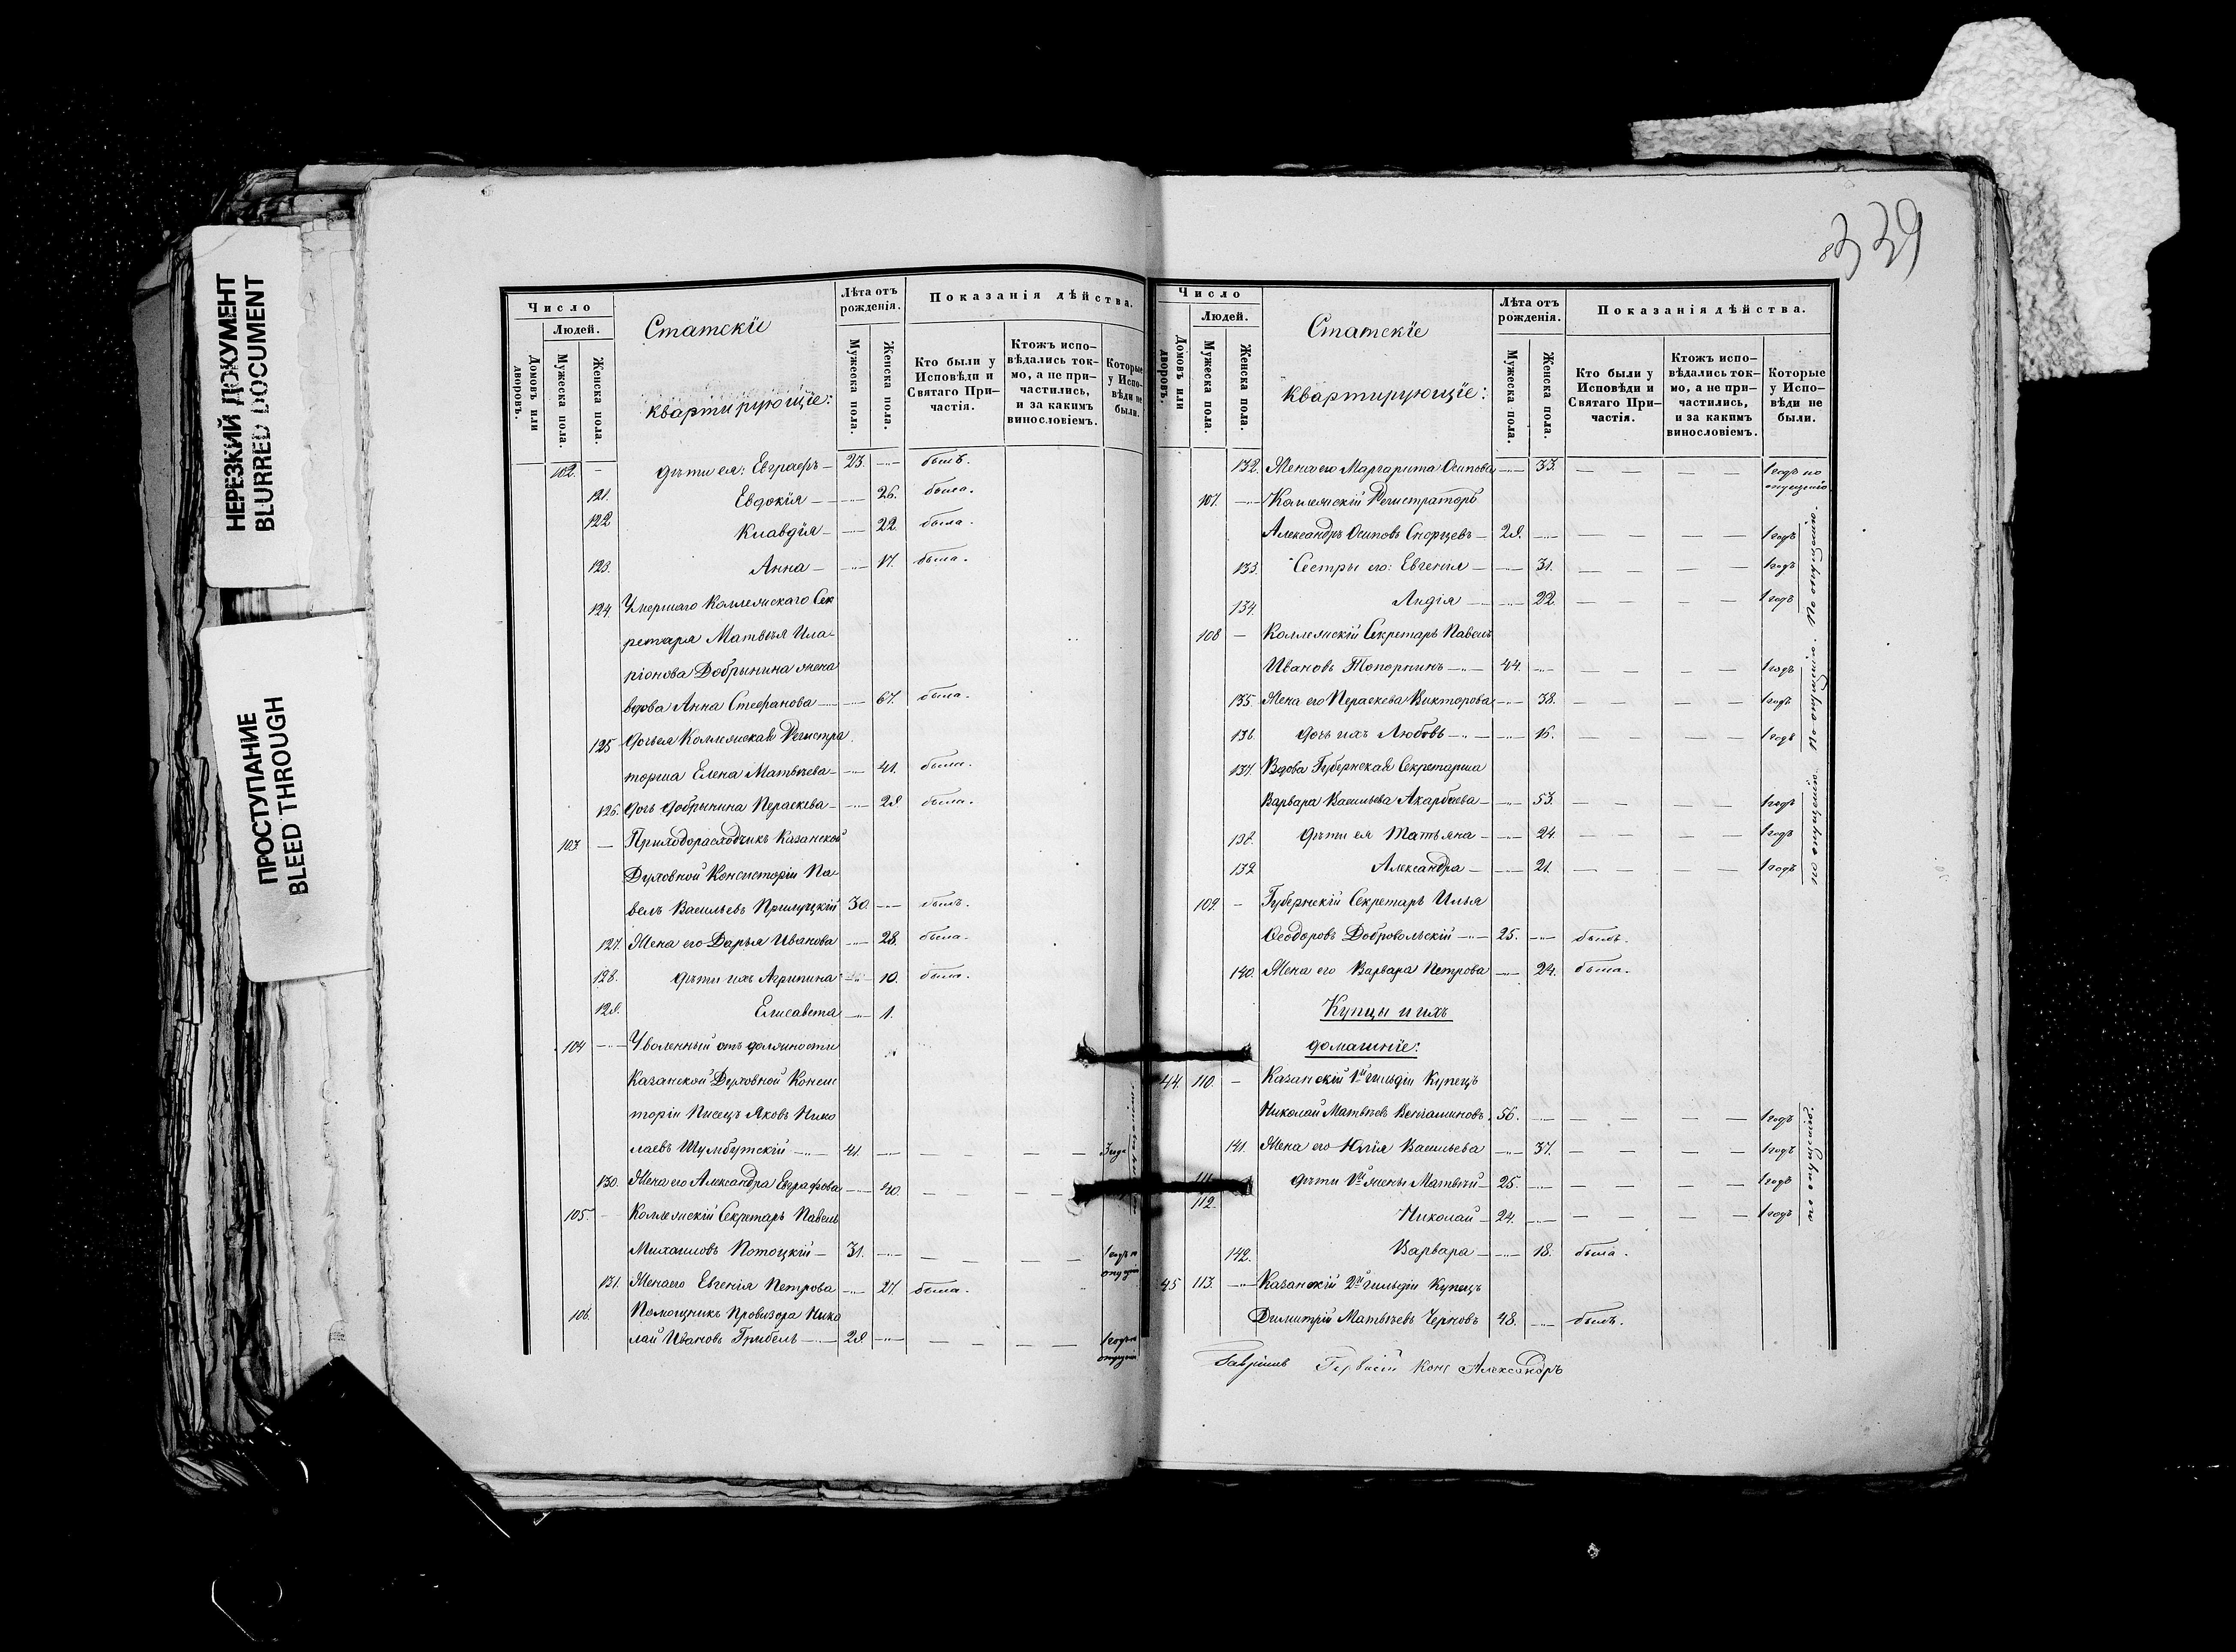 НЕРЕЗКИЙ ДОКУМЕНТ
BLURRED DOCUMENT
ПРОСТУПАНИЕ
BLEED THROUGH
Число
Людей.
Домовъ или дворовъ.
Мужеска пола.
Женска пола.
Статскіе
квартирующіе:
Лѣта отъ рожденія.
Мужеска пола.
Женска пола.
Показанія дѣйства.
Кто были у Исповѣди и Святаго При-частія.
Ктожъ испо-вѣдались ток-мо, а не при-частились, и за какимъ винословіемъ.
Которые у Испо-вѣди не были.
102. — дѣти ея: Евграфъ — 23. — былъ.
121. Евдокія — — 26. была.
122 Клавдія — — 22. была.
123. Анна — — 17. была.
124. Умершаго Коллежскаго Сек
ретаря Матвѣя Ила-
ріонова Добрынина жена
вдова Анна Стефанова — — 67. была.
125 Дочь ея Коллежская Регистра
торша Елена Матвѣева — — 41. была.
126. Дочь Добрынина Параскева — — 28 была.
103. — Приходорасходчикъ Казанской
Духовной Консисторіи Па-
велъ Васильевъ Прилуцкій 30. — былъ.
127. Жена его Дарья Иванова — 28. была.
128. дѣти ихъ Агрипина — 10. была.
129. Елисавета — 1.
104 — Уволенный отъ должности
Казанской Духовной Консис
торіи Писецъ Яковъ Нико
лаевъ Шумбутскій — 41. — — — — — 3 года
130. Жена его Александра Евграфова — 40. — — —
105. — Коллежскій Секретарь Павелъ
Михаиловъ Потоцкій — 31. — — — — — 1 годъ
131. Жена его Евгенія Петрова — 27. была.
106. Помощникъ Провизора Нико
лай Ивановъ Грибель — 28 — — — — — 1 годъ
339
Число
Людей.
Домовъ или дворовъ.
Мужеска пола.
Женска пола.
Статскіе
квартирующіе:
Лѣта отъ рожденія.
Мужеска пола.
Женска пола.
Показанія дѣйства.
Кто были у Исповѣди и Святаго При-частія.
Ктожъ испо-вѣдались ток-мо, а не при-частились, и за какимъ винословіемъ.
Которые у Испо-вѣди не были.
132. Жена его Маргарита Осипова — 33. — — — — 1 годъ по опущенію
107. — Коллежскій Регистраторъ
Александръ Осиповъ Скорцевъ — 28. — — — — — 1 годъ
133. Сестры его: Евгенія — — 31. — — — — 1 годъ
134. Лидія — — 22. — — — — 1 годъ
По опущенію.
108 — Коллежскій Секретарь Павелъ
Ивановъ Топорнинъ — 44. — — — — — 1 годъ
135. Жена его Параскева Викторова — 38. — — — — 1 годъ
136. дочь ихъ Любовь — — 16. — — — — 1 годъ
По опущенію.
137. Вдова Губернская Секретарша
Варвара Васильева Акарбаева — — 53. — — — — 1 годъ
138. дѣти ея Татьяна — — 24 — — — — 1 годъ
139 Александра — — 21. — — — — 1 годъ
по опущенію.
109. — Губернскій Секретарь Илья
Ѳеодоровъ Добровольскій — 25. — былъ.
140. Жена его Варвара Петрова — 24. была.
Купцы и ихъ
домашніе:
44. 110. — Казанскій 1й гильдіи Купецъ
Николай Матвѣевъ Веніаминовъ. 56. — — — — — 1 годъ
141. Жена его Юлія Васильева — 37. — — — — 1 годъ
111. дѣти 1й жены Матвѣй — 25. — — — — — 1 годъ
112. Николай — 24. — — — — — 1 годъ
по опущенію.
142. Варвара — — 18. была.
45 113. — Казанскій 2й гильдіи Купецъ
Димитрій Матвѣевъ Черновъ 48. — былъ.
Александръ